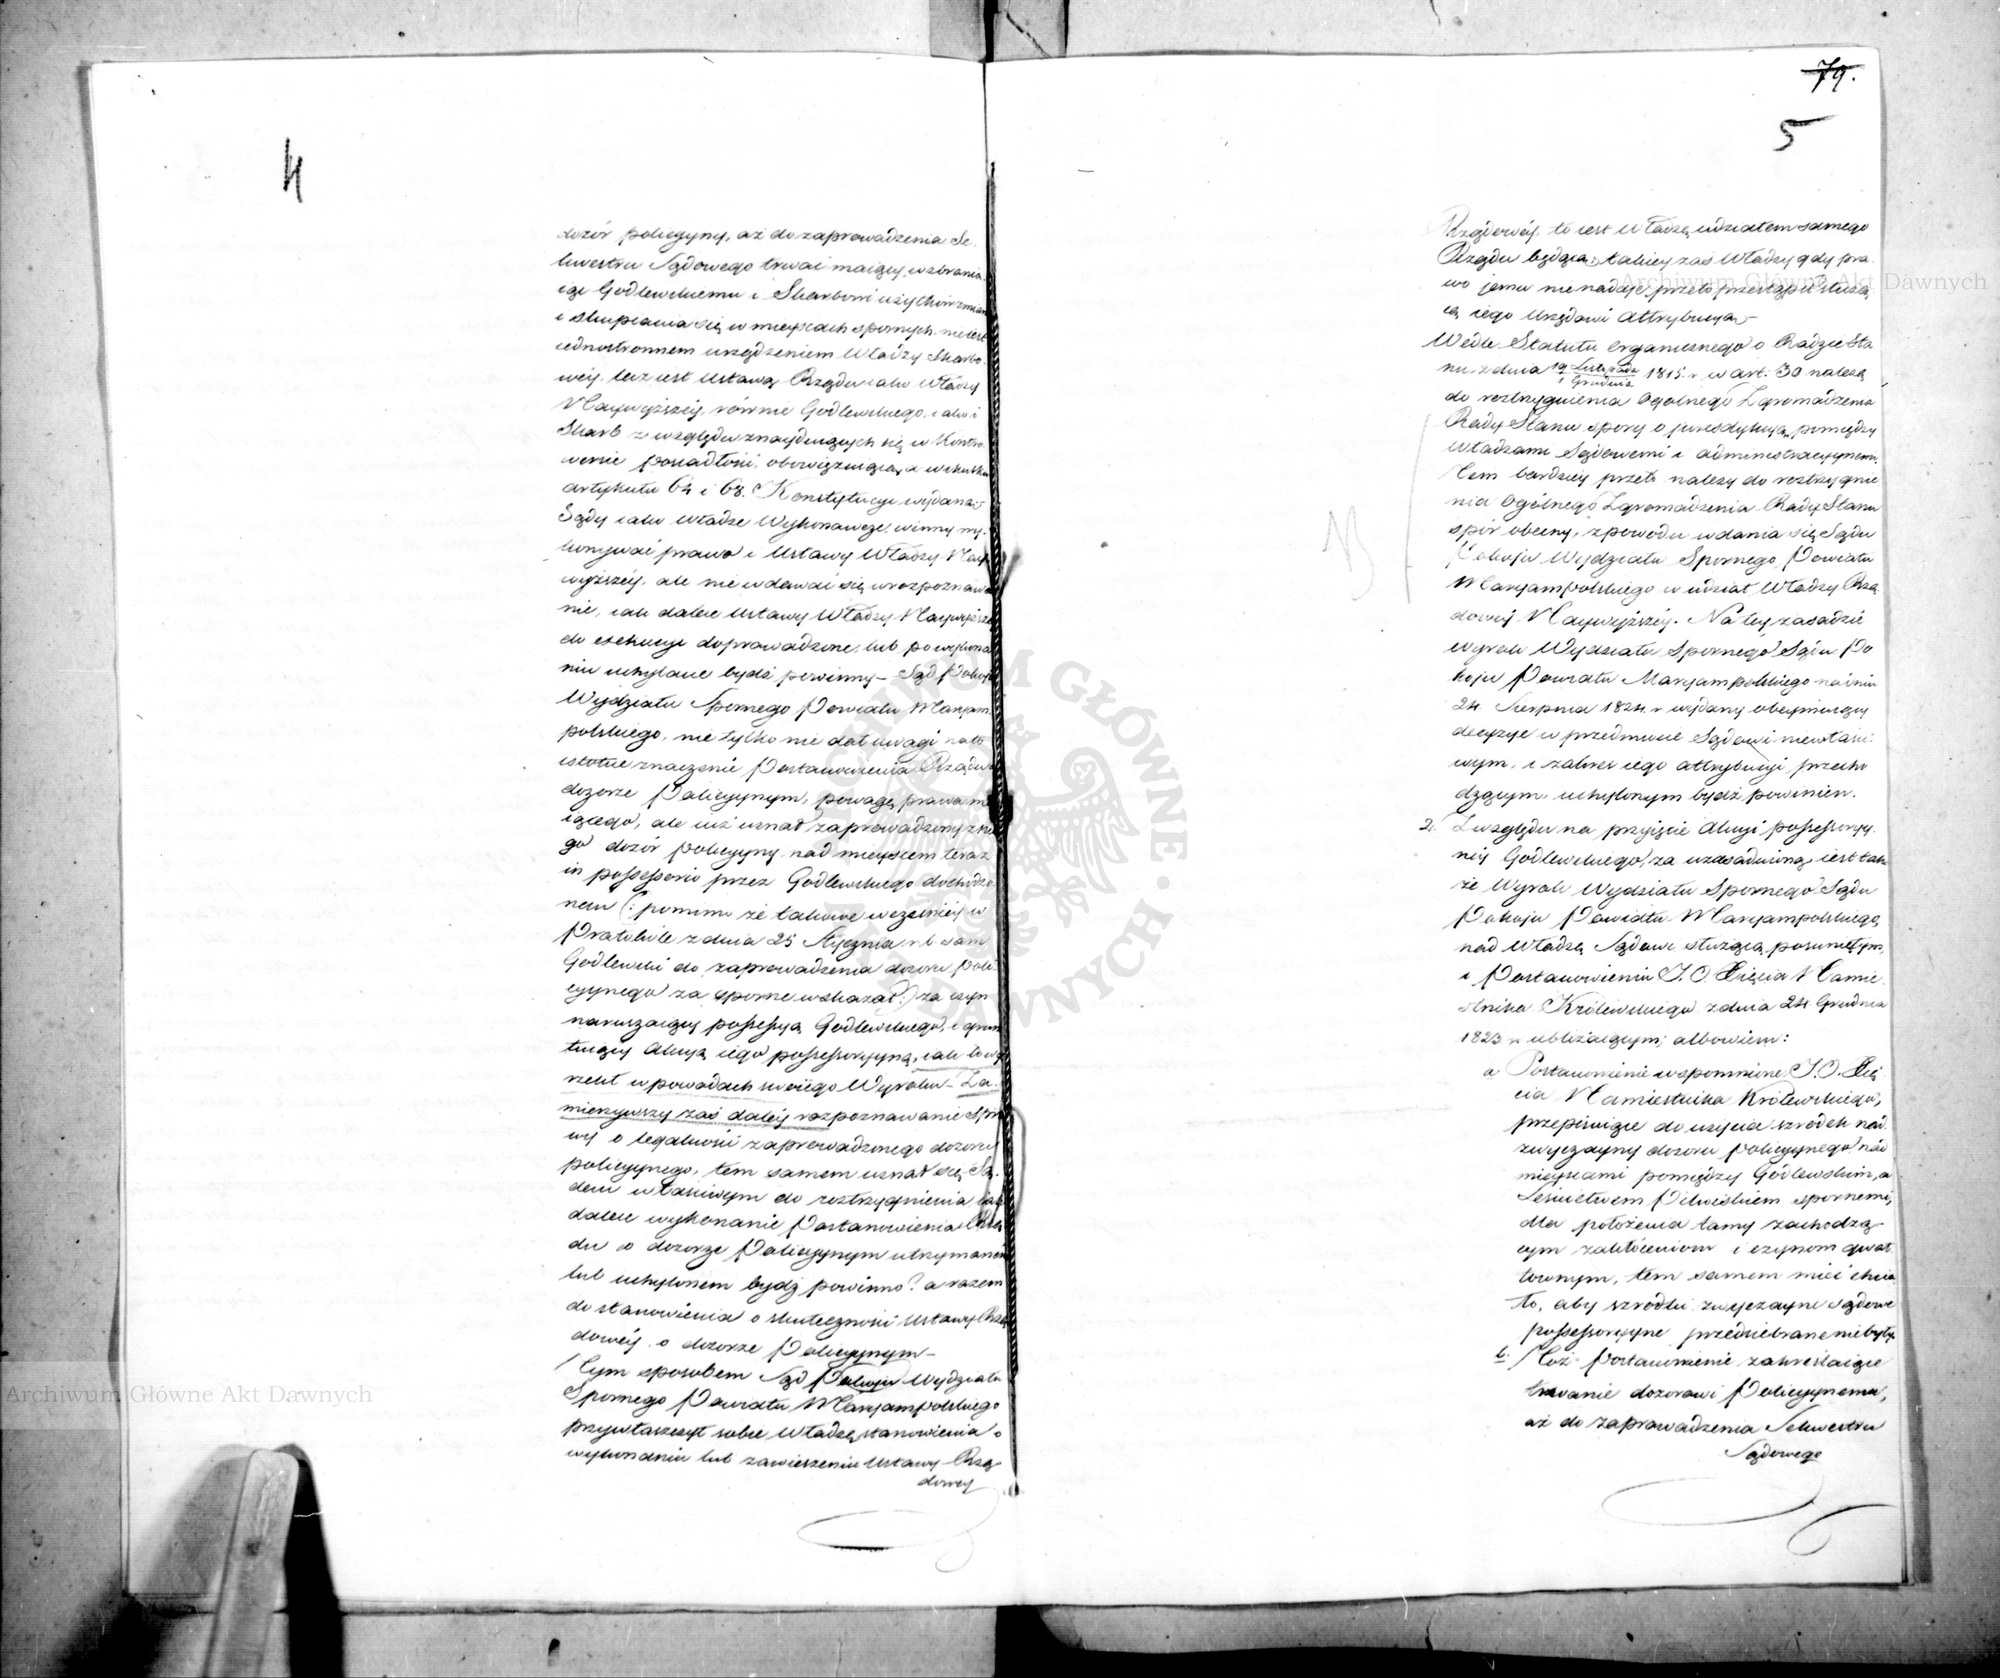 4
dozór policyyny, aż do zaprowadzenia Se-
kwestru Sądowego trwać maiący, wzbrania-
iąc Godlewskiemu i Skarbowi użytków zmian
i skupiania się w mieyscach spornych, nie iest
iednostronnem urządzeniem Władzy Skarbo-
wéy, lecz iest Ustawą Rządu iako Władzy
Naywyższéy, równie Godlewskiego, iako i
Skarb z względu znayduiących się w Kontro-
wersie posiadłości, obowiązuiącą, a w skutku
artykułu 64 i 68. Konstytucyi wydaną.–
Sądy iako Władze Wykonawcze, winny wy-
konywać prawa i Ustawy Władzy Nay-
wyższéy, ale nie wdawać się w rozpoznawa-
nie, iak dalece Ustawy Władzy Naywyższéy
do exekucyi doprowadzone, lub po wykona-
niu uchylane bydź powinny – Sąd Pokoju
Wydziału Spornego Powiatu Maryam-
polskiego, nie tylko nie dał uwagi na to
istotne znaczenie Postanowienia Rządu o
dozorze Policyynym, powagę prawa ma-
iącego, ale iuż uznał zaprowadzony z nie-
go dozór policyyny nad mieyscem teraz
in possessorio przez Godlewskiego dochodzo-
nem (: pomimo że takowe wcześniéy w
Protokóle z dnia 25 Stycznia r. b. sam
Godlewski do zaprowadzenia dozoru poli-
cyynego za sporne wskazał :) za czyn
naruszaiący possessyą Godlewskiego, i grun-
tuiący akcyą iego possessoryyną, iak to wy-
rzekł w powodach swoiego Wyroku – Za-
mierzywszy zaś daléy rozpoznawanie spra-
wy o legalności zaprowadzonego dozoru
policyynego, tem samem uznał się Są-
dem właściwym do roztrzygnienia iak
dalece wykonanie Postanowienia Rzą-
du o dozorze Policyynym utrzymanem
lub uchylonem bydź powinno? a razem
do stanowienia o skuteczności Ustawy Rzą-
dowéy o dozorze Policyynym –
Tym sposobem Sąd Pokoju Wydziału
Spornego Powiatu Maryampolskiego
przywłaszczył sobie Władzę stanowienia o
wykonaniu lub zawieszeniu Ustawy Rzą-
dowey
79.
5
Rządowéy, to iest Władzę udziałem samego
Rządu będącą, takiey zaś Władzy gdy pra-
wo jemu nie nadaje, przeto przestąpił służą-
cą iego Urzędowi Attrybucyą –
Wedle Statutu Organicznego o Radzie Sta-
nu z dnia 19 Listopada / 1 Grudnia 1815. r. w art: 30 należą
do roztrzygnienia Ogólnego Zgromadzenia
Rady Stanu spory o jurisdykcyą pomiędzy
Władzami Sądowemi i administracyynemi.
Tem bardziéy przeto należy do roztrzygnie-
nia Ogólnego Zgromadzenia Rady Stanu
spór obecny, z powodu wdania się Sądu
Pokoju Wydziału Spornego Powiatu
Maryampolskiego w udział Władzy Rzą-
dowéy Naywyższéy. Na téy zasadzie
Wyrok Wydziału Spornego Sądu Po-
koju Powiatu Maryampolskiego na dniu
24 Sierpnia 1824. r. wydany obeymuiący
decyzye w przedmiocie Sądowi niewłaści-
wym, i zakres iego attrybucyi przecho-
dzącym, uchylonym bydź powinien.
2. Z względu na przyięcie akcyi possessoryy-
néy Godlewskiego, za uzasadnioną, iest tak-
że Wyrok Wydziału Spornego Sądu
Pokoju Powiatu Maryampolskiego
nad Władzę Sądowi służącą posuniętym,
i Postanowieniu J.O. Xięcia Namie-
stnika Królewskiego z dnia 24 Grudnia
1823 r. ubliżaiącym; albowiem:
a Postanowienie wspomnione J.O. Xię-
cia Namiestnika Królewskiego,
przepisuiąc do użycia szrodek nad-
zwyczayny dozoru Policyynego nad
mieyscami pomiędzy Godlewskim, a
Leśnictwem Pilwiskiem spornemi,
dla położenia tamy zachodzą-
cym zakłóceniom i czynom gwał-
townym, tem samem mieć chcia-
ło, aby szrodki zwyczayne sądowe
possessoryyne przedsiebrane nie były.
b. Toż Postanowienie zakreślaiąc
trwanie dozorowi Policyynemu,
aż do zaprowadzenia Sekwestru
Sądowego
Archiwum Główne Akt Dawnych
Archiwum Główne Akt Dawnych
ARCHIWUM GŁÓWNE AKT DAWNYCH